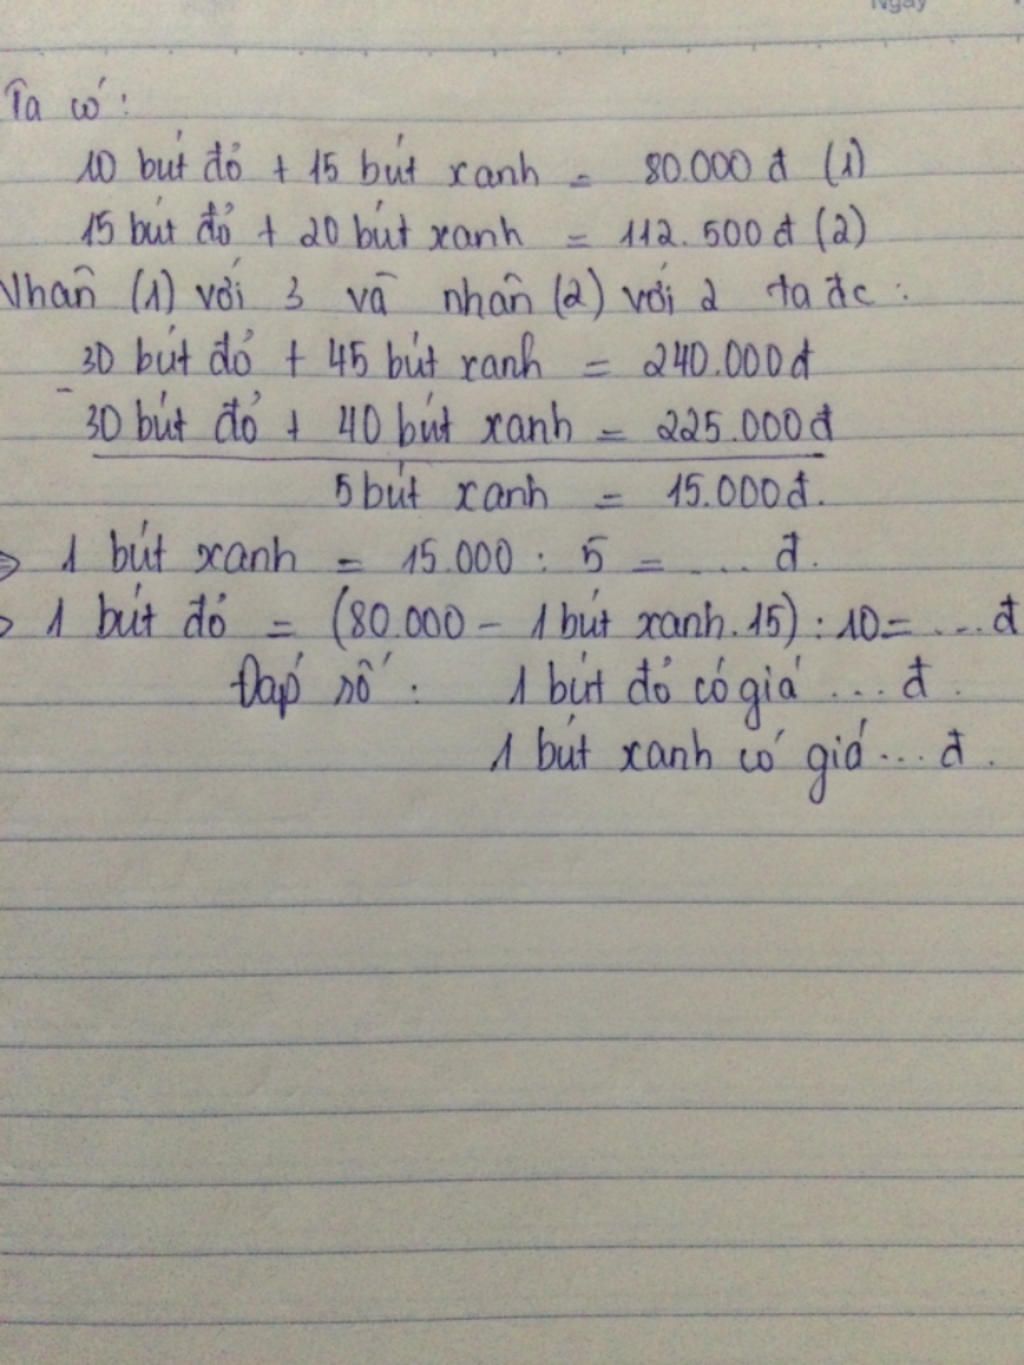 Ngày
Ta có:
10 bút đỏ + 15 bút xanh = 80.000 đ (1)
15 bút đỏ + 20 bút xanh = 112.500 đ (2)
Nhân (1) với 3 và nhân (2) với 2 ta đc :
30 bút đỏ + 45 bút xanh = 240.000đ
-
30 bút đỏ + 40 bút xanh = 225.000đ
5 bút xanh = 15.000đ.
=> 1 bút xanh = 15.000 : 5 = ... đ.
=> 1 bút đỏ = (80.000 - 1 bút xanh.15) : 10 = ... đ
Đáp số : 1 bút đỏ có giá ... đ.
1 bút xanh có giá ... đ.